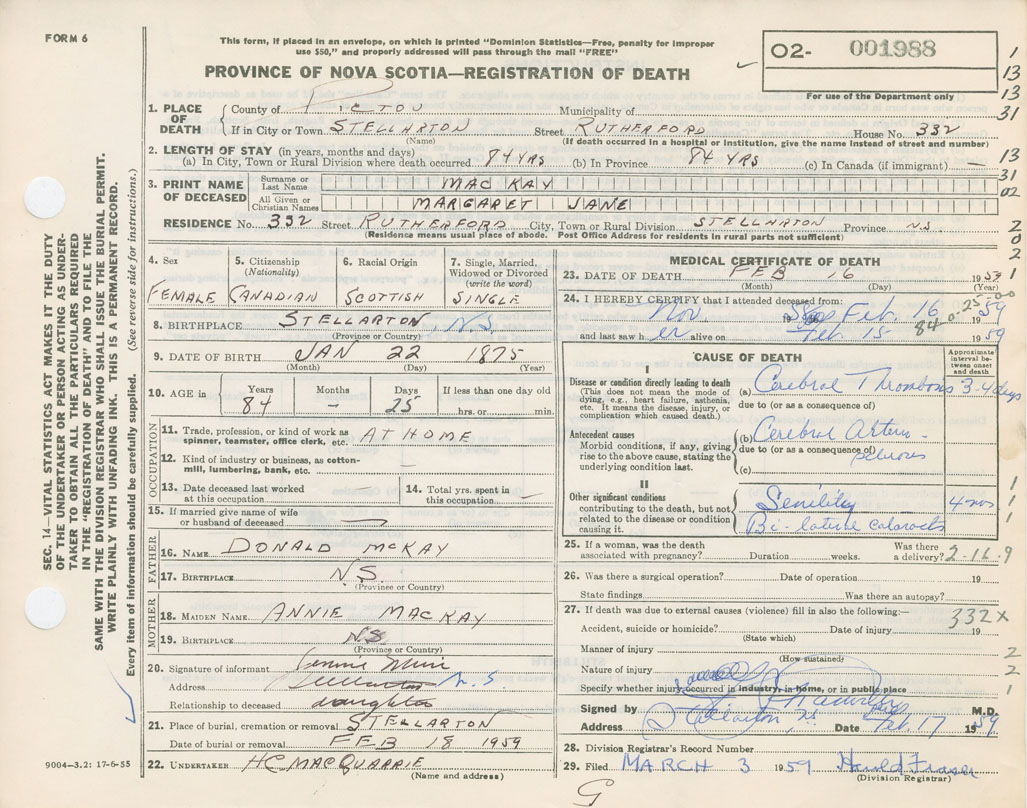 FORM 6
This form, if placed in an envelope, on which is printed "Dominion Statistics—Free, penalty for improper
use $50," and properly addressed will pass through the mail "FREE"
PROVINCE OF NOVA SCOTIA—REGISTRATION OF DEATH
02- 001988
For use of the Department only
1
13
13
31
13
31
02
2
0
2
1
SEC. 14—VITAL STATISTICS ACT MAKES IT THE DUTY
OF THE UNDERTAKER OR PERSON ACTING AS UNDER-
TAKER TO OBTAIN ALL THE PARTICULARS REQUIRED
IN THE "REGISTRATION OF DEATH" AND TO FILE THE
SAME WITH THE DIVISION REGISTRAR WHO SHALL ISSUE THE BURIAL PERMIT.
WRITE PLAINLY WITH UNFADING INK. THIS IS A PERMANENT RECORD.
Every item of information should be carefully supplied. (See reverse side for instructions.)
1. PLACE OF DEATH County of PICTOU Municipality of
If in City or Town STELLARTON Street RUTHERFORD House No. 332
(Name) (If death occurred in a hospital or institution, give the name instead of street and number)
2. LENGTH OF STAY (in years, months and days)
(a) In City, Town or Rural Division where death occurred 84 YRS (b) In Province 84 YRS (c) In Canada (if immigrant) —
3. PRINT NAME OF DECEASED Surname or Last Name MACKAY
All Given or Christian Names MARGARET JANE
RESIDENCE No. 332 Street RUTHERFORD City, Town or Rural Division STELLARTON Province N.S.
(Residence means usual place of abode. Post Office Address for residents in rural parts not sufficient)
4. Sex FEMALE
5. Citizenship (Nationality) CANADIAN
6. Racial Origin SCOTTISH
7. Single, Married, Widowed or Divorced (write the word) SINGLE
8. BIRTHPLACE STELLARTON, N.S.
(Province or Country)
9. DATE OF BIRTH JAN 22 1875
(Month) (Day) (Year)
10. AGE in Years 84 Months — Days 25 If less than one day old hrs. or min.
OCCUPATION
11. Trade, profession, or kind of work as spinner, teamster, office clerk, etc. AT HOME
12. Kind of industry or business, as cotton-mill, lumbering, bank, etc. —
13. Date deceased last worked at this occupation —
14. Total yrs. spent in this occupation —
15. If married give name of wife or husband of deceased —
FATHER
16. NAME DONALD McKAY
17. BIRTHPLACE N.S.
(Province or Country)
MOTHER
18. MAIDEN NAME ANNIE MACKAY
19. BIRTHPLACE N.S.
(Province or Country)
20. Signature of informant Muir
Address Stellarton N.S
Relationship to deceased daughter
21. Place of burial, cremation or removal STELLARTON
Date of burial or removal FEB 18 1959
22. UNDERTAKER HC MACQUARRIE
(Name and address)
9004-3.2: 17-6-55
MEDICAL CERTIFICATE OF DEATH
23. DATE OF DEATH FEB 16 1959
(Month) (Day) (Year)
24. I HEREBY CERTIFY that I attended deceased from:
Nov. Feb. 16 1959
and last saw her alive on Feb. 15 1959
84-0-25-00
CAUSE OF DEATH
Approximate interval between onset and death
I
Disease or condition directly leading to death
(This does not mean the mode of dying, e.g., heart failure, asthenia, etc. It means the disease, injury, or complication which caused death.)
(a) Cerebral Thrombosis 3-4 days
due to (or as a consequence of)
Antecedent causes
Morbid conditions, if any, giving rise to the above cause, stating the underlying condition last.
(b) Cerebral Arterio-
due to (or as a consequence of) sclerosis
(c)
II
Other significant conditions contributing to the death, but not related to the disease or condition causing it.
Senility 4 mos
Bi-lateral cataracts
1
1
1
1
25. If a woman, was the death associated with pregnancy? Duration weeks. Was there a delivery? 2-16-9
26. Was there a surgical operation? Date of operation 19
State findings Was there an autopsy?
27. If death was due to external causes (violence) fill in also the following:— 332X
Accident, suicide or homicide? Date of injury 19
(State which)
Manner of injury 2
(How sustained)
Nature of injury 2
Specify whether injury occurred in industry, in home, or in public place 1
Signed by M.D.
Address Stellarton N.S. Date Feb. 17 1959
28. Division Registrar's Record Number
29. Filed MARCH 3 1959 Harold Fraser
(Division Registrar)
G